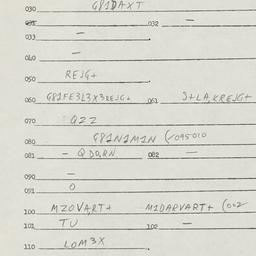 030 G81DAXT
031 032 —
033 —
040 —
050 REJG+
060 G81FE3L3X3REJG+ 061 S+LA,KREJG+
070 QZZ
080 G81N1M1N (-095010
081 — QDO,RN 082 —
090 —
091 O
100 MZOVART+ M1DARVART+ (002
101 TU 102 —
110 LOM3X